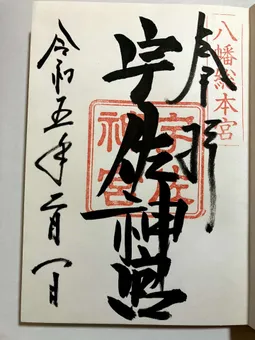 八幡総本宮
奉拝
宇佐神宮
宇佐
神宮
令和五年二月一日